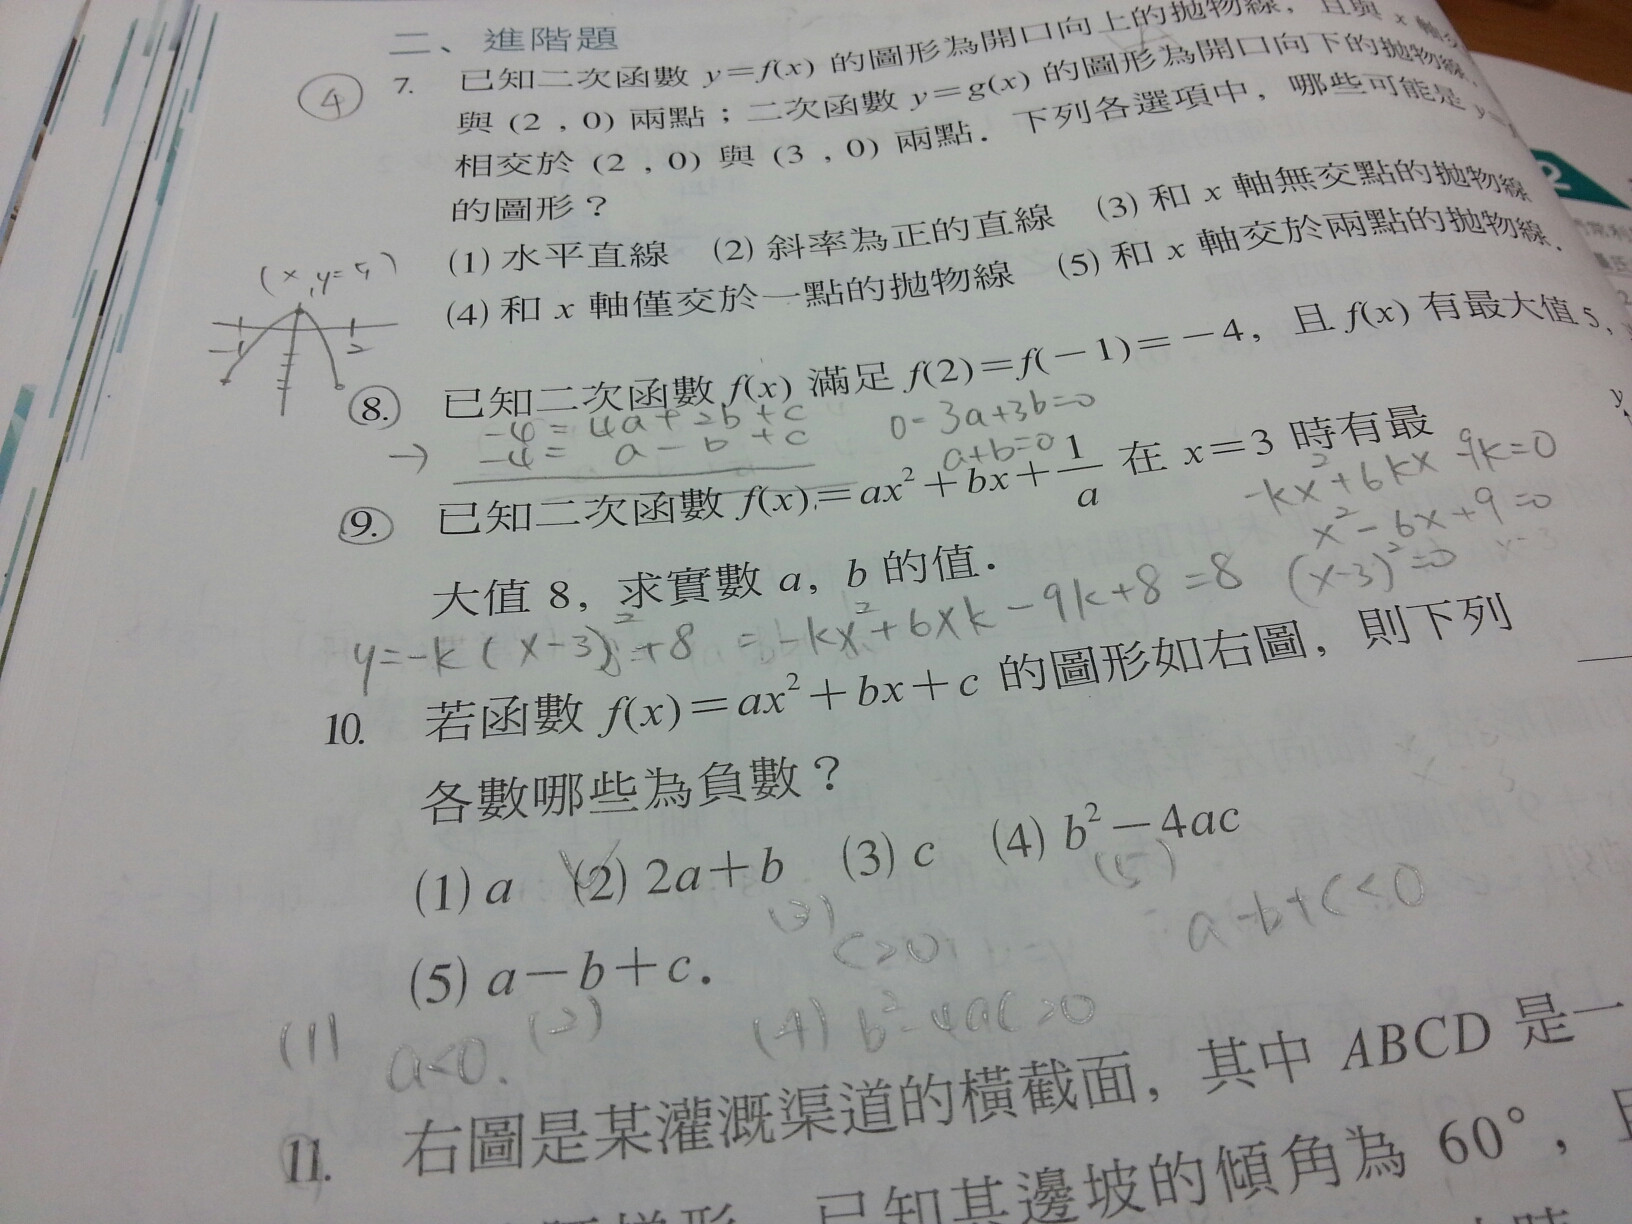 二、進階題
④ 7. 已知二次函數 y=f(x) 的圖形為開口向上的拋物線，且與 x 軸
與 (2 , 0) 兩點；二次函數 y=g(x) 的圖形為開口向下的拋物線，
相交於 (2 , 0) 與 (3 , 0) 兩點．下列各選項中，哪些可能是 y=
的圖形？
(1) 水平直線 (2) 斜率為正的直線 (3) 和 x 軸無交點的拋物線
(4) 和 x 軸僅交於一點的拋物線 (5) 和 x 軸交於兩點的拋物線．
(x,y=5)
-1 2
8. 已知二次函數 f(x) 滿足 f(2)=f(−1)=−4，且 f(x) 有最大值 5，
-4=4a+2b+c 0=3a+3b=0
→ -4= a-b+c a+b=0
9. 已知二次函數 f(x)=ax²+bx+1/a 在 x=3 時有最
-kx²+6kx 9k=0
x²-6x+9=0
x-3
大值 8，求實數 a，b 的值．
(x-3)²=0
y=-k(x-3)²+8 =-kx²+6xk-9k+8=8
10. 若函數 f(x)=ax²+bx+c 的圖形如右圖，則下列
各數哪些為負數？
(1) a (2) 2a+b (3) c (4) b²−4ac
(5) a−b+c．
(3) c>0 (5) a-b+c<0
(1) a<0. (2) (4) b²-4ac>0
11. 右圖是某灌溉渠道的橫截面，其中 ABCD 是一
已知其邊坡的傾角為 60°，